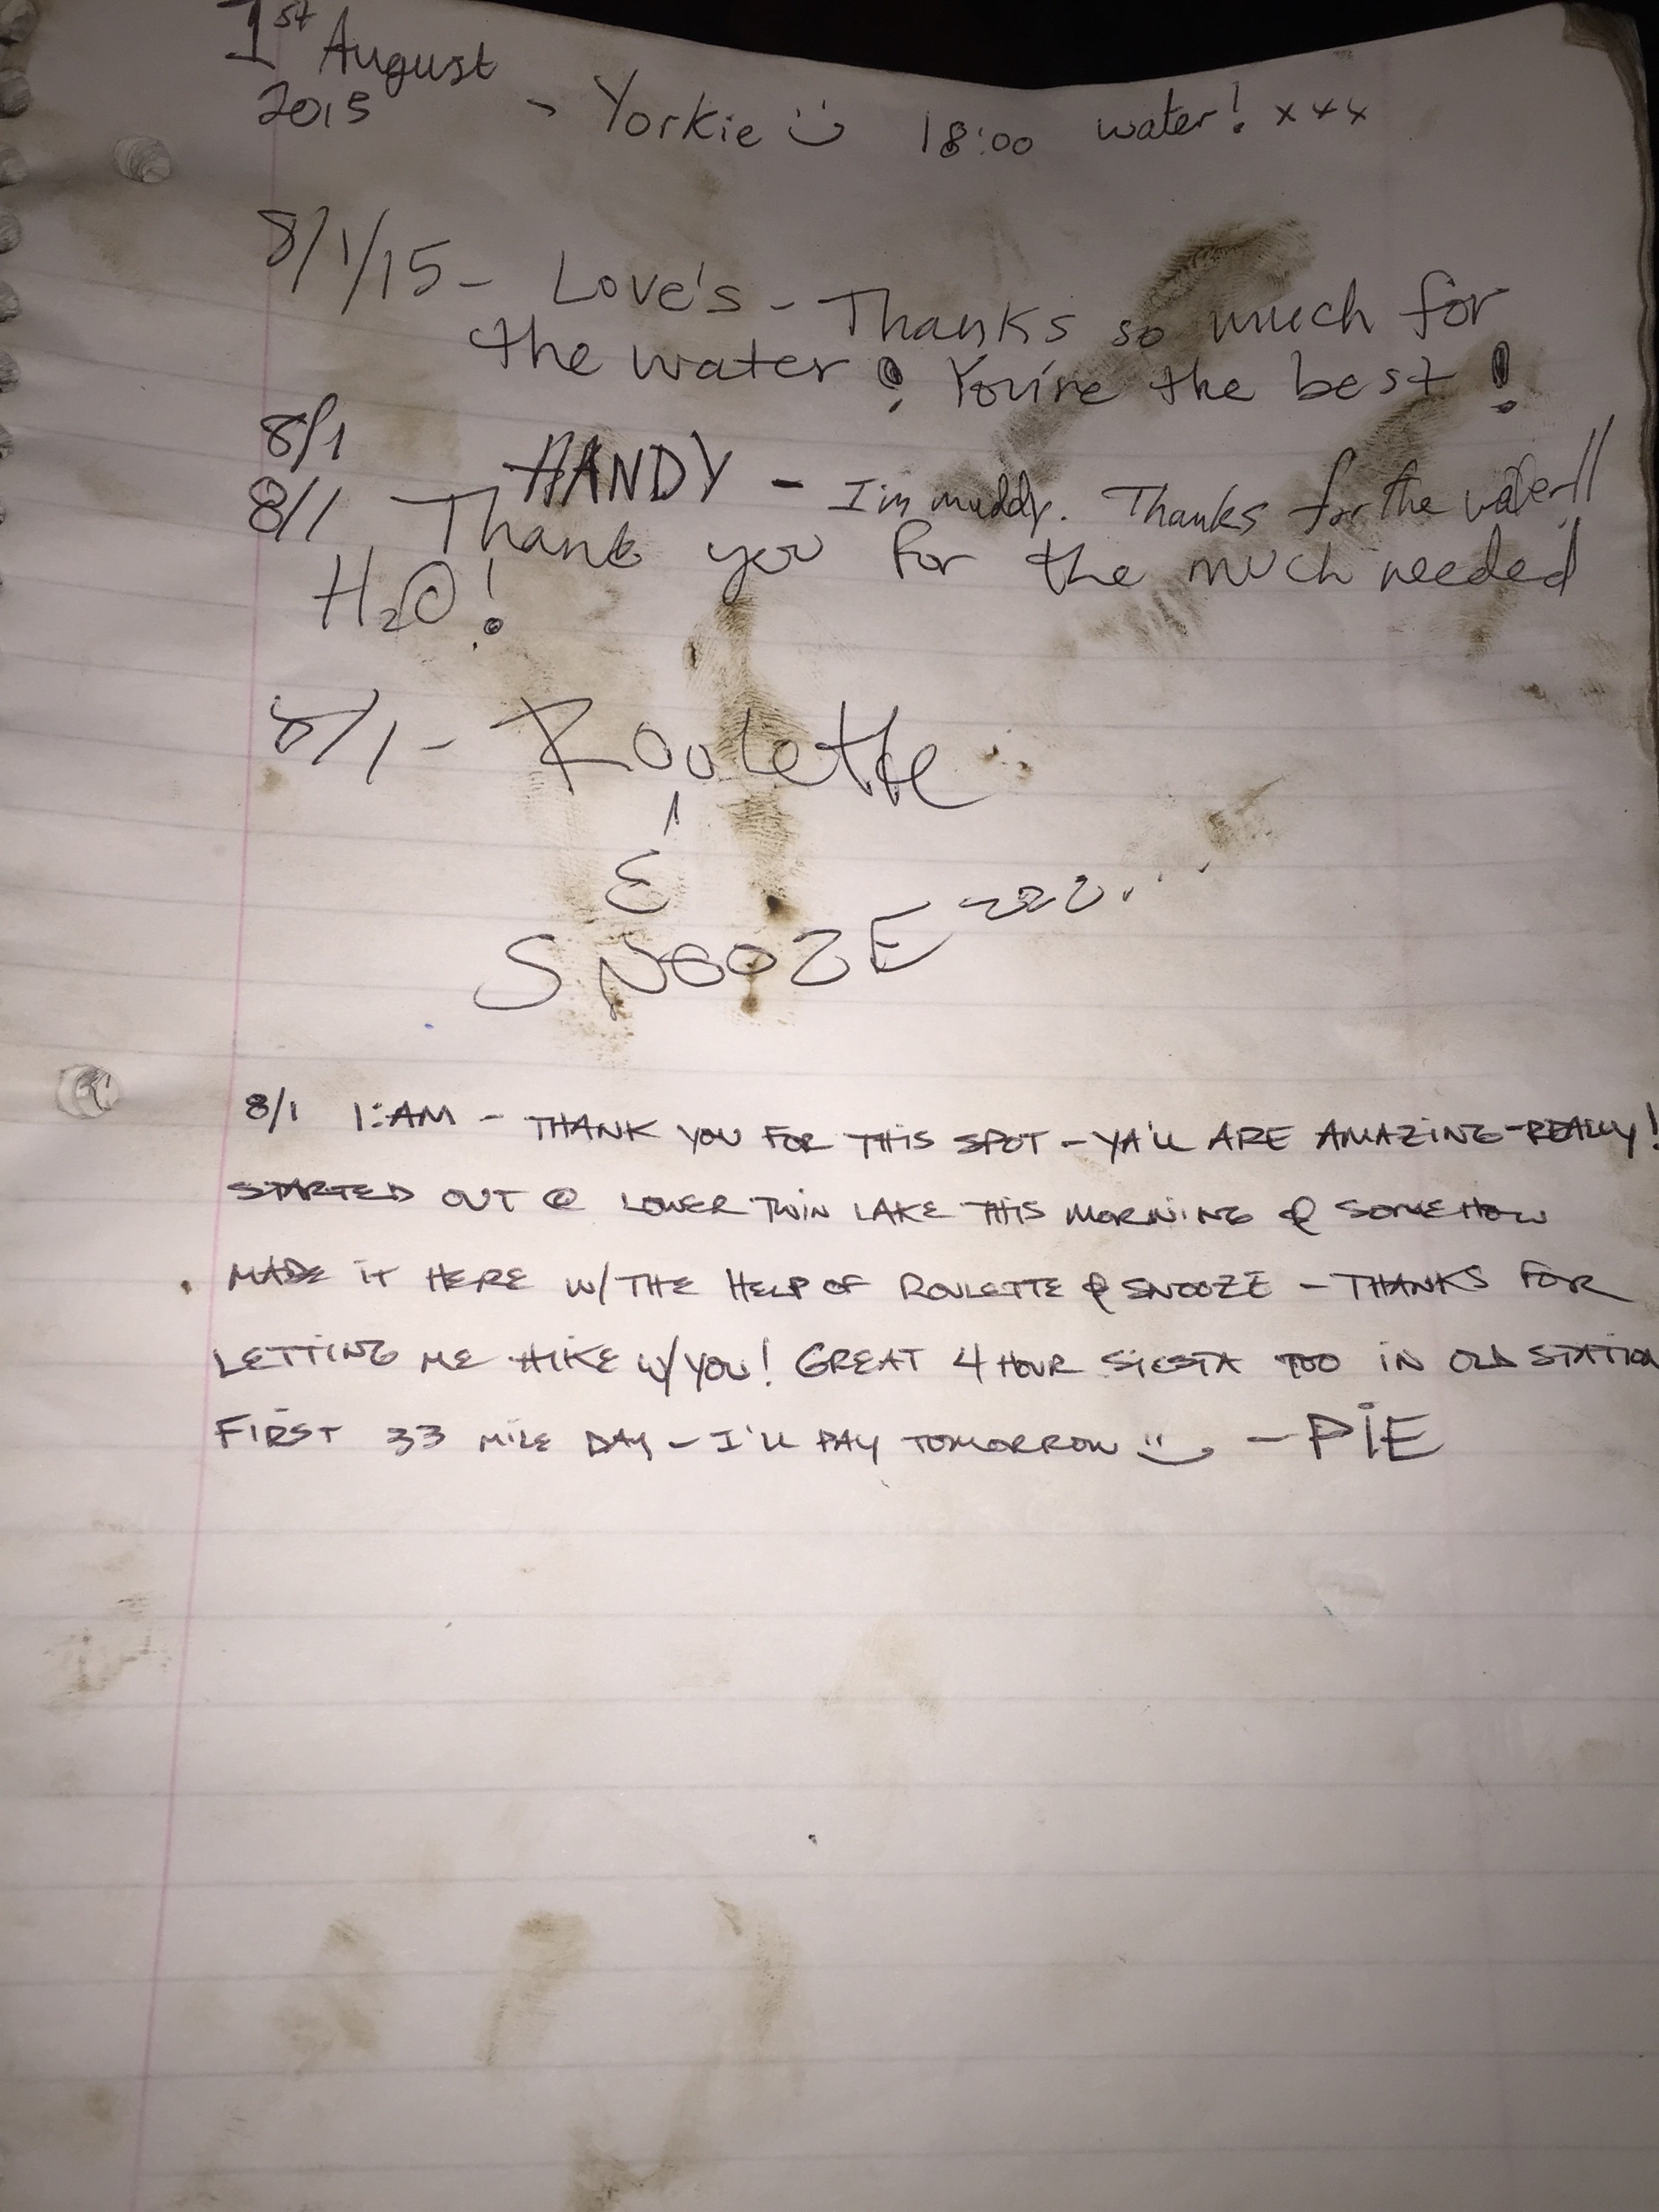 1st August
2015 - Yorkie :) 18:00 water! xxx
8/1/15 - Love's - Thanks so much for
the water! You're the best!
8/1 HANDY - I'm muddy. Thanks for the water!!
8/1 Thank you for the much needed
H2O!
8/1 - Roulette
&
SNOOZE zzz...
8/1 1:AM - THANK YOU FOR THIS SPOT - YA'LL ARE AMAZING - REALLY!
STARTED OUT @ LOWER TWIN LAKE THIS MORNING & SOMEHOW
MADE IT HERE W/ THE HELP OF ROULETTE & SNOOZE - THANKS FOR
LETTING ME HIKE W/ YOU! GREAT 4 HOUR SIESTA TOO IN OLD STATION
FIRST 33 MILE DAY - I'LL PAY TOMORROW :) - PIE